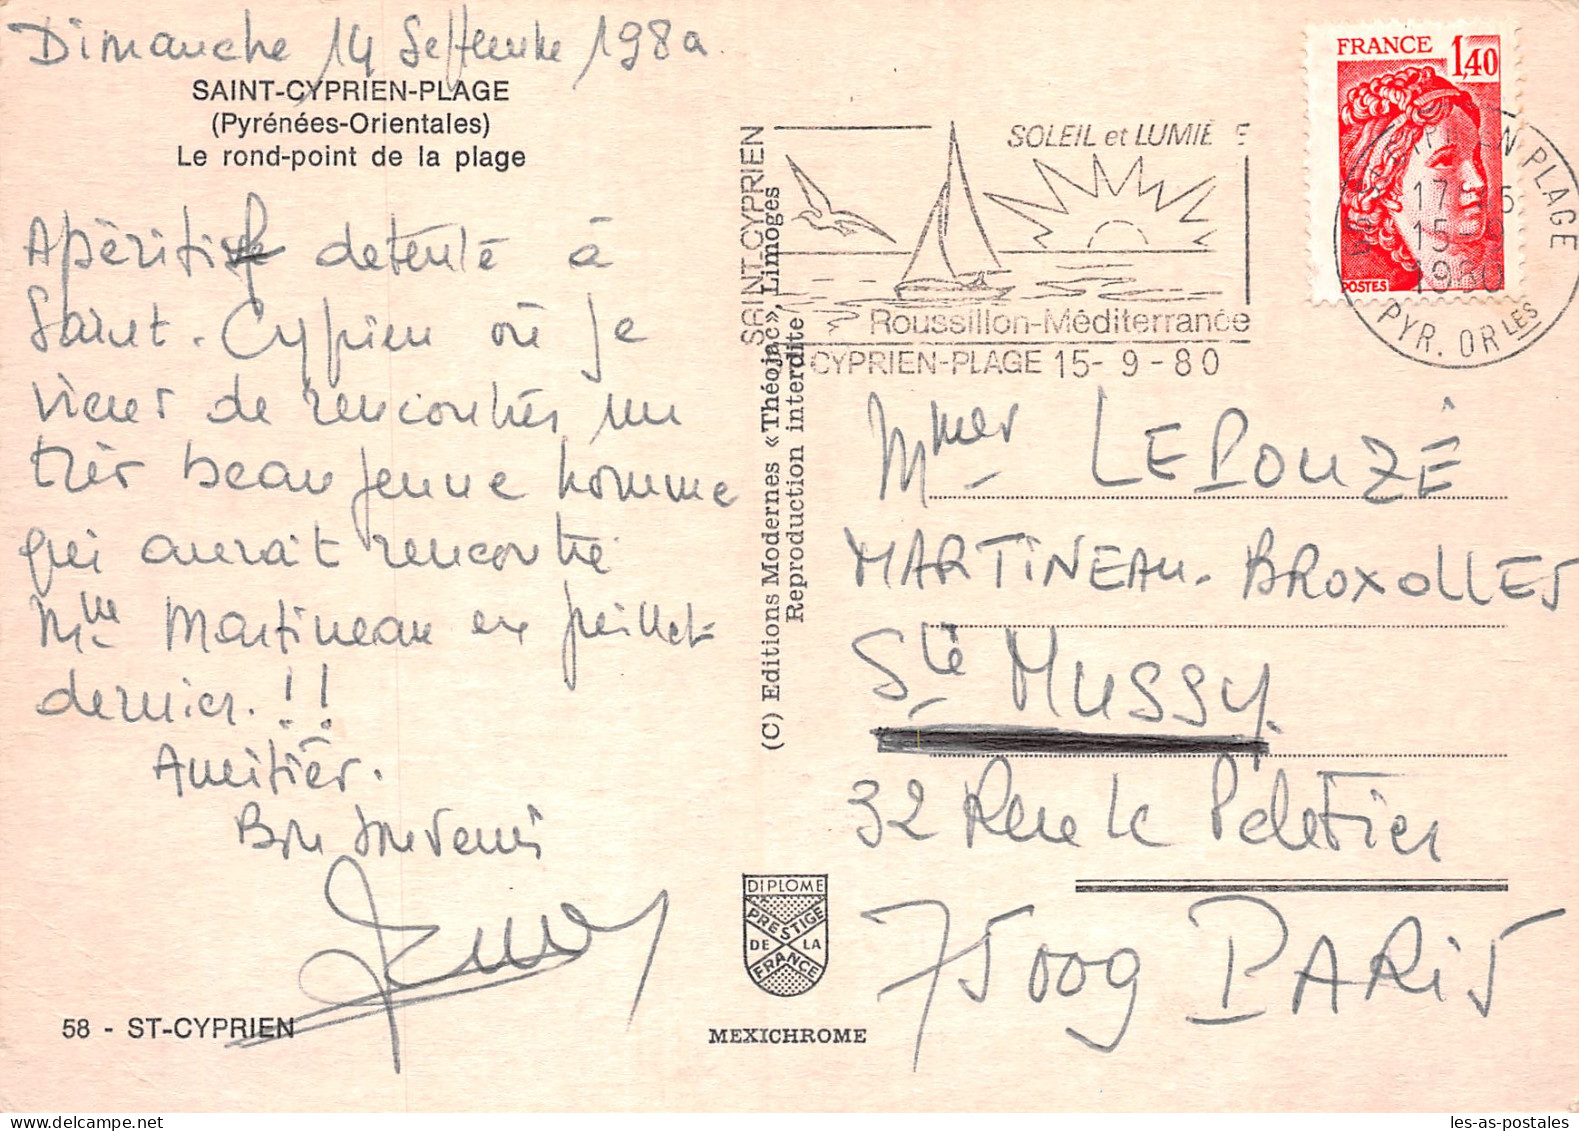 Dimanche 14 Septembre 1980
SAINT-CYPRIEN-PLAGE
(Pyrénées-Orientales)
Le rond-point de la plage
Apéritif detente à
Saint-Cyprien où je
viens de rencontrés un
très beau jeune homme
qui aurait rencontré
Mme Martineau en juillet
dernier.!!
Amitiés.
Bon souvenir
58 - ST-CYPRIEN
(C) Editions Modernes «Théojac», Limoges
Reproduction interdite
DIPLOME
PRESTIGE
DE LA
FRANCE
MEXICHROME
SAINT-CYPRIEN
SOLEIL et LUMIÈRE
Roussillon-Méditerranée
CYPRIEN-PLAGE 15-9-80
FRANCE 1,40
POSTES
PLAGE
15
1980
PYR. ORLES
Mmes LEPOUZÉ
MARTINEAU-BROXOLLES
Sté MUSSY.
32 Rue le Peletier
75009 PARIS
les-as-postales